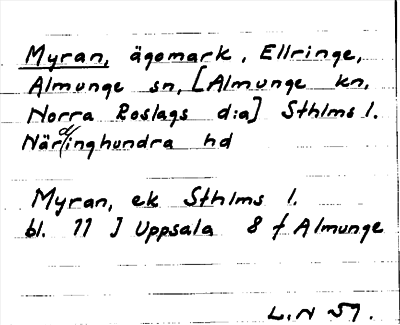 Myran, ägomark, Ellringe,
Almunge sn, [Almunge kn,
Norra Roslags d:a] Sthlms l.
Närdinghundra hd
Myran, ek Sthlms l.
bl. 77 J Uppsala 8 f Almunge
L.N 51.